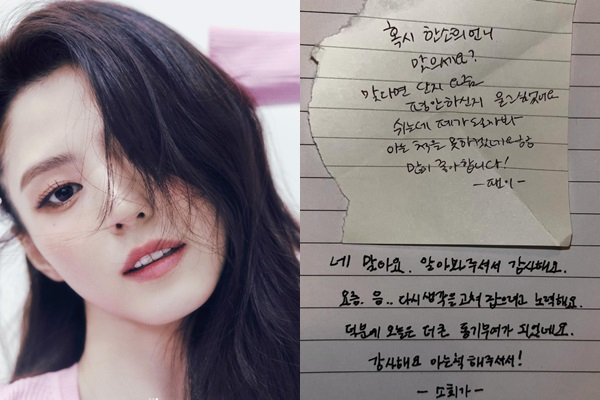 혹시 한소희언니
맞으세요?
맞다면 단지 요즘
평안하신지 묻고싶었어요
쉬는데 폐가 되자봐
아는 척을 못하겠네요
많이 좋아합니다!
- 팬이 -
네 맞아요. 알아봐주셔서 감사해요.
요즘. 음.. 다시 생각을 고쳐 잡으려고 노력해요.
덕분에 오늘은 더 큰 동기부여가 되었네요.
감사해요 아는척 해주셔서!
- 소희가 -